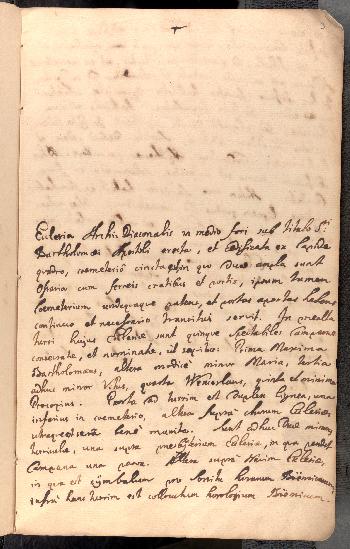 3
Eclesia Archi Diaconalis in medio fori sub titulo S:
Bartholomaei Apostoli erecta, et Edificata ex Lapide
quadro, coemeterio cincta est in quo Duo ampla sunt
Ossaria cum ferreis cratibus et portis, ipsum tamen
Coemeterium undequaque patens, et portas apertas habens
continuo et necessario transitui servit. In
turri hujus Eclesiae sunt quinque Campanae
consecratae, et nominatae, ut sequitur: Prima Maxima
Bartholomaeus, altera modice minor Maria, tertia
adhuc minor Vitus, quarta Wenceslaus, quinta et minima
Procopius. Porta ad turrim est Duplex lignea, una
inferius in coemeterio, altera supra chorum Eclesiae,
utraque sera bene munita. Sunt adhuc Duae minores
turriculae, una supra presbiterium Eclesiae, in qua pendet
Campana una parva. Altera supra Navim Eclesiae,
in qua est cymbalum pro sonitu horarum
infra hanc turrim est collocatum horologium